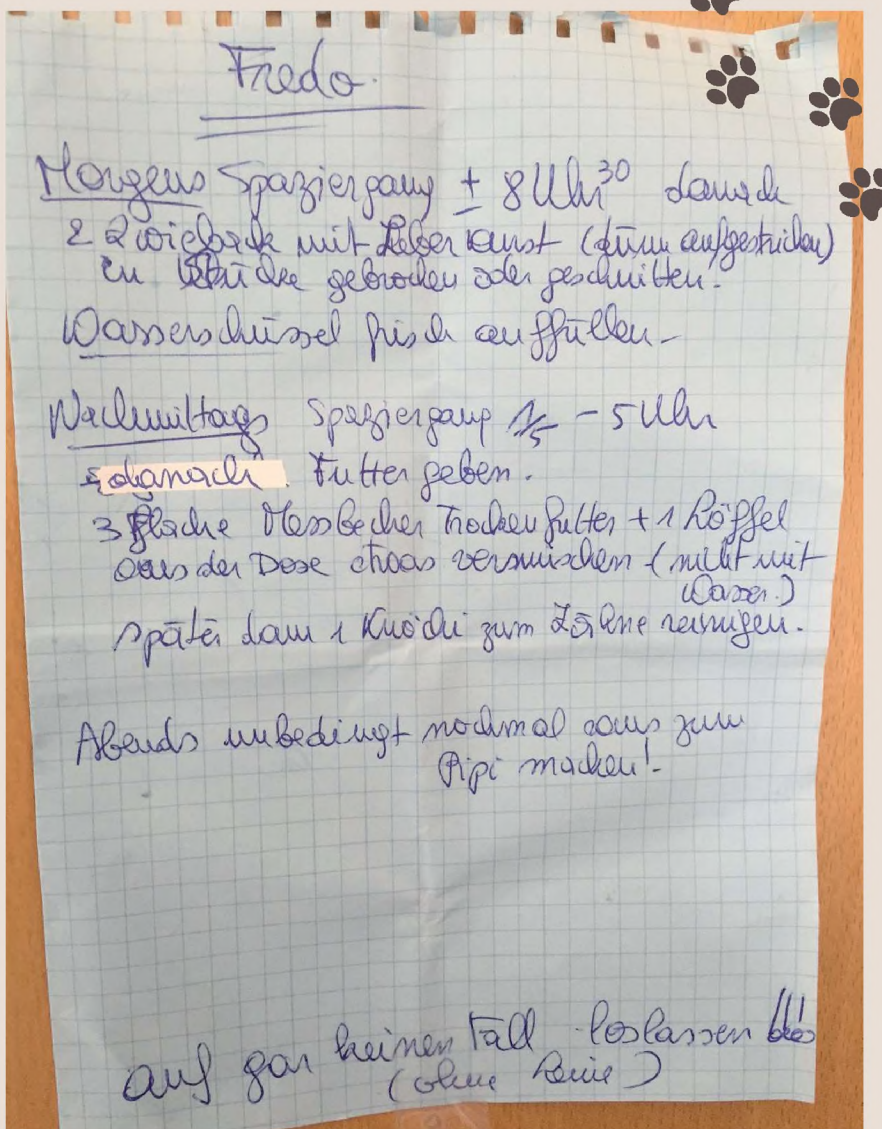 Fredo.
Morgens Spaziergang ± 8 Uhr 30 danach
2 Zwieback mit Leberwurst (dünn aufgestrichen)
in Stücke gebrochen oder geschnitten!
Wasserschüssel frisch auffüllen -
Nachmittags Spaziergang - 5 Uhr
danach. Futter geben.
3 flache Messbecher Trockenfutter + 1 Löffel
aus der Dose etwas vermischen (nicht mit
Wasser.)
später dann 1 Knöchi zum Zähne reinigen.
Abends unbedingt nochmal raus zum
Pipi machen!
auf gar keinen Fall loslassen !!!
(ohne Leine)